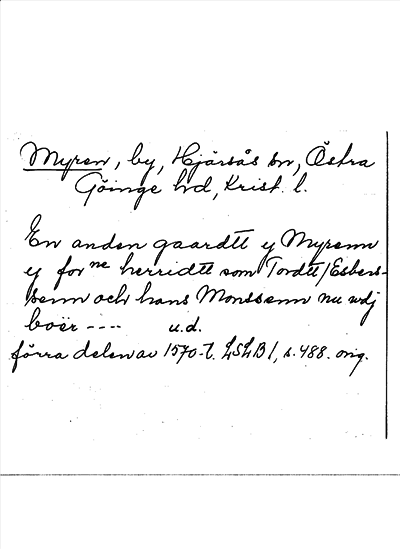 Myren, by, Hjärsås sn, Östra
Göinge hd, Krist. l.
En anden gaardtt y Myrenn
y for ne herridtt som Tordtt/Esbers-
senn och hans Monssenn nu udj
boër ---- u.d.
förra delen av 1570-t. LSLB1, s. 488. orig.